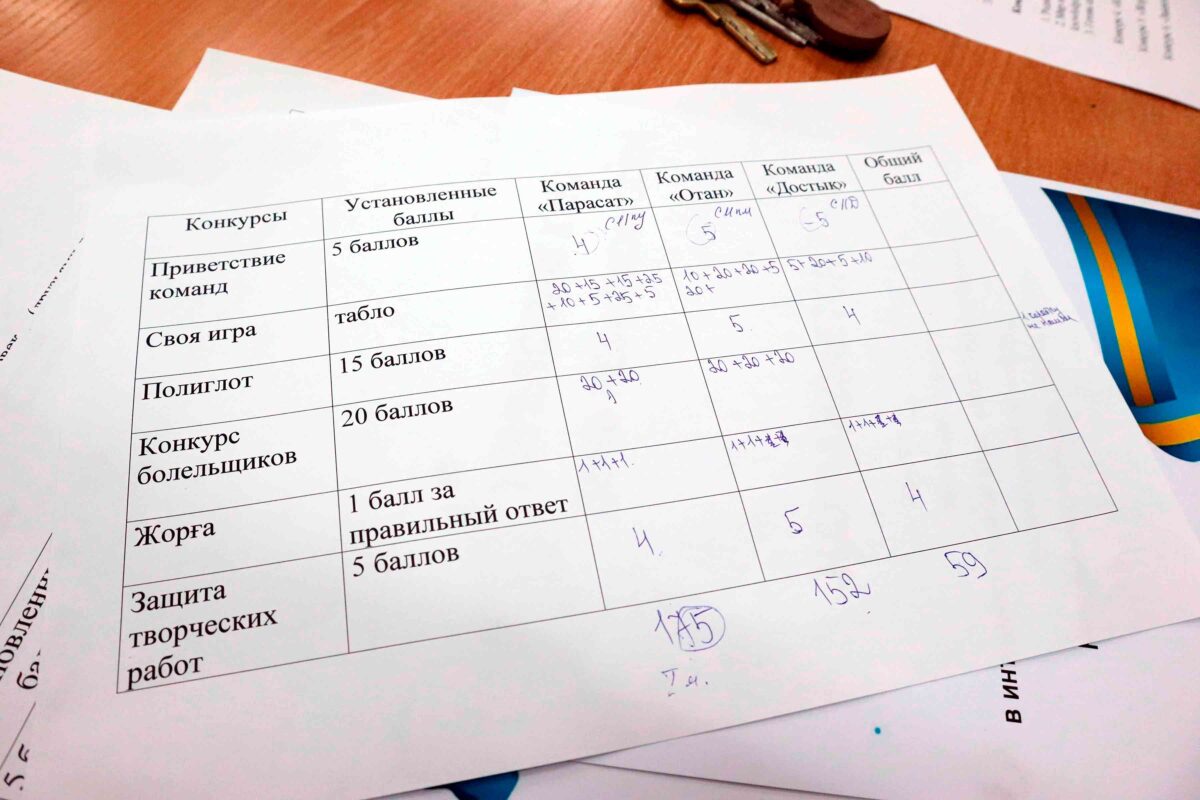 Конкурсы
Установленные баллы
Команда «Парасат»
Команда «Отан»
Команда «Достык»
Общий балл
Приветствие команд
5 баллов
4
5
5
Своя игра
табло
20+15+15+25
+10+5+25+5
10+20+20+5
20+
5+20+5+10
Полиглот
15 баллов
4
5
4
Конкурс болельщиков
20 баллов
20+20
20+20+20
Жорға
1 балл за правильный ответ
1+1+1
1+1+
1+1+
Защита творческих работ
5 баллов
4
5
4
175
152
59
В ИНТ